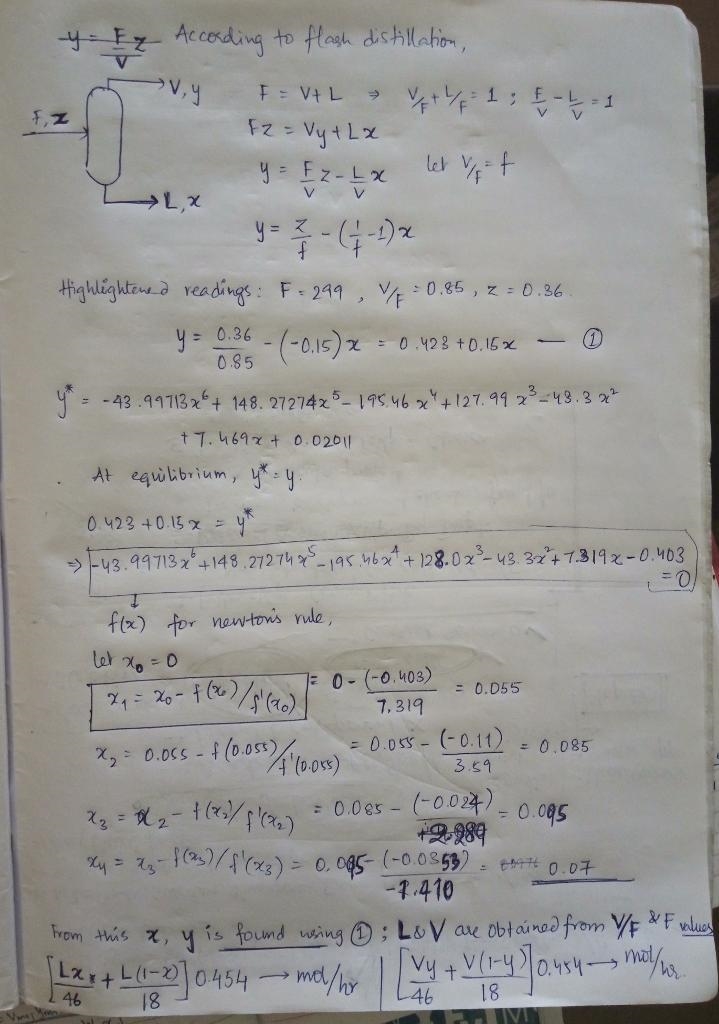 y = F/V z According to flash distillation,
V, y F = V+L ⇒ V/F + L/F = 1 ; F/V - L/V = 1
F, z Fz = Vy + Lx
y = F/V z - L/V x let V/F = f
L, x
y = z/f - (1/f - 1) x
Highlightened readings: F = 299 , V/F = 0.85 , z = 0.36.
y = 0.36/0.85 - (-0.15) x = 0.423 + 0.15x — ①
y* = -43.99713x⁶ + 148.27274x⁵ - 195.46x⁴ + 127.99x³ - 43.3x²
+ 7.469x + 0.02011
At equilibrium, y* = y.
0.423 + 0.15x = y*
⇒ -43.99713x⁶ + 148.27274x⁵ - 195.46x⁴ + 128.0x³ - 43.3x² + 7.319x - 0.403
= 0
f(x) for newton's rule,
let x₀ = 0
x₁ = x₀ - f(x₀)/f'(x₀) = 0 - (-0.403)/7.319 = 0.055
x₂ = 0.055 - f(0.055)/f'(0.055) = 0.055 - (-0.11)/3.59 = 0.085
x₃ = x₂ - f(x₂)/f'(x₂) = 0.085 - (-0.024) = 0.095
x₄ = x₃ - f(x₃)/f'(x₃) = 0.095 - (-0.0353)/-1.410 = 0.07
From this x, y is found using ① ; L & V are obtained from V/F & F values
[Lx/46 + L(1-x)/18] 0.454 → mol/hr | [Vy/46 + V(1-y)/18] 0.454 → mol/hr.